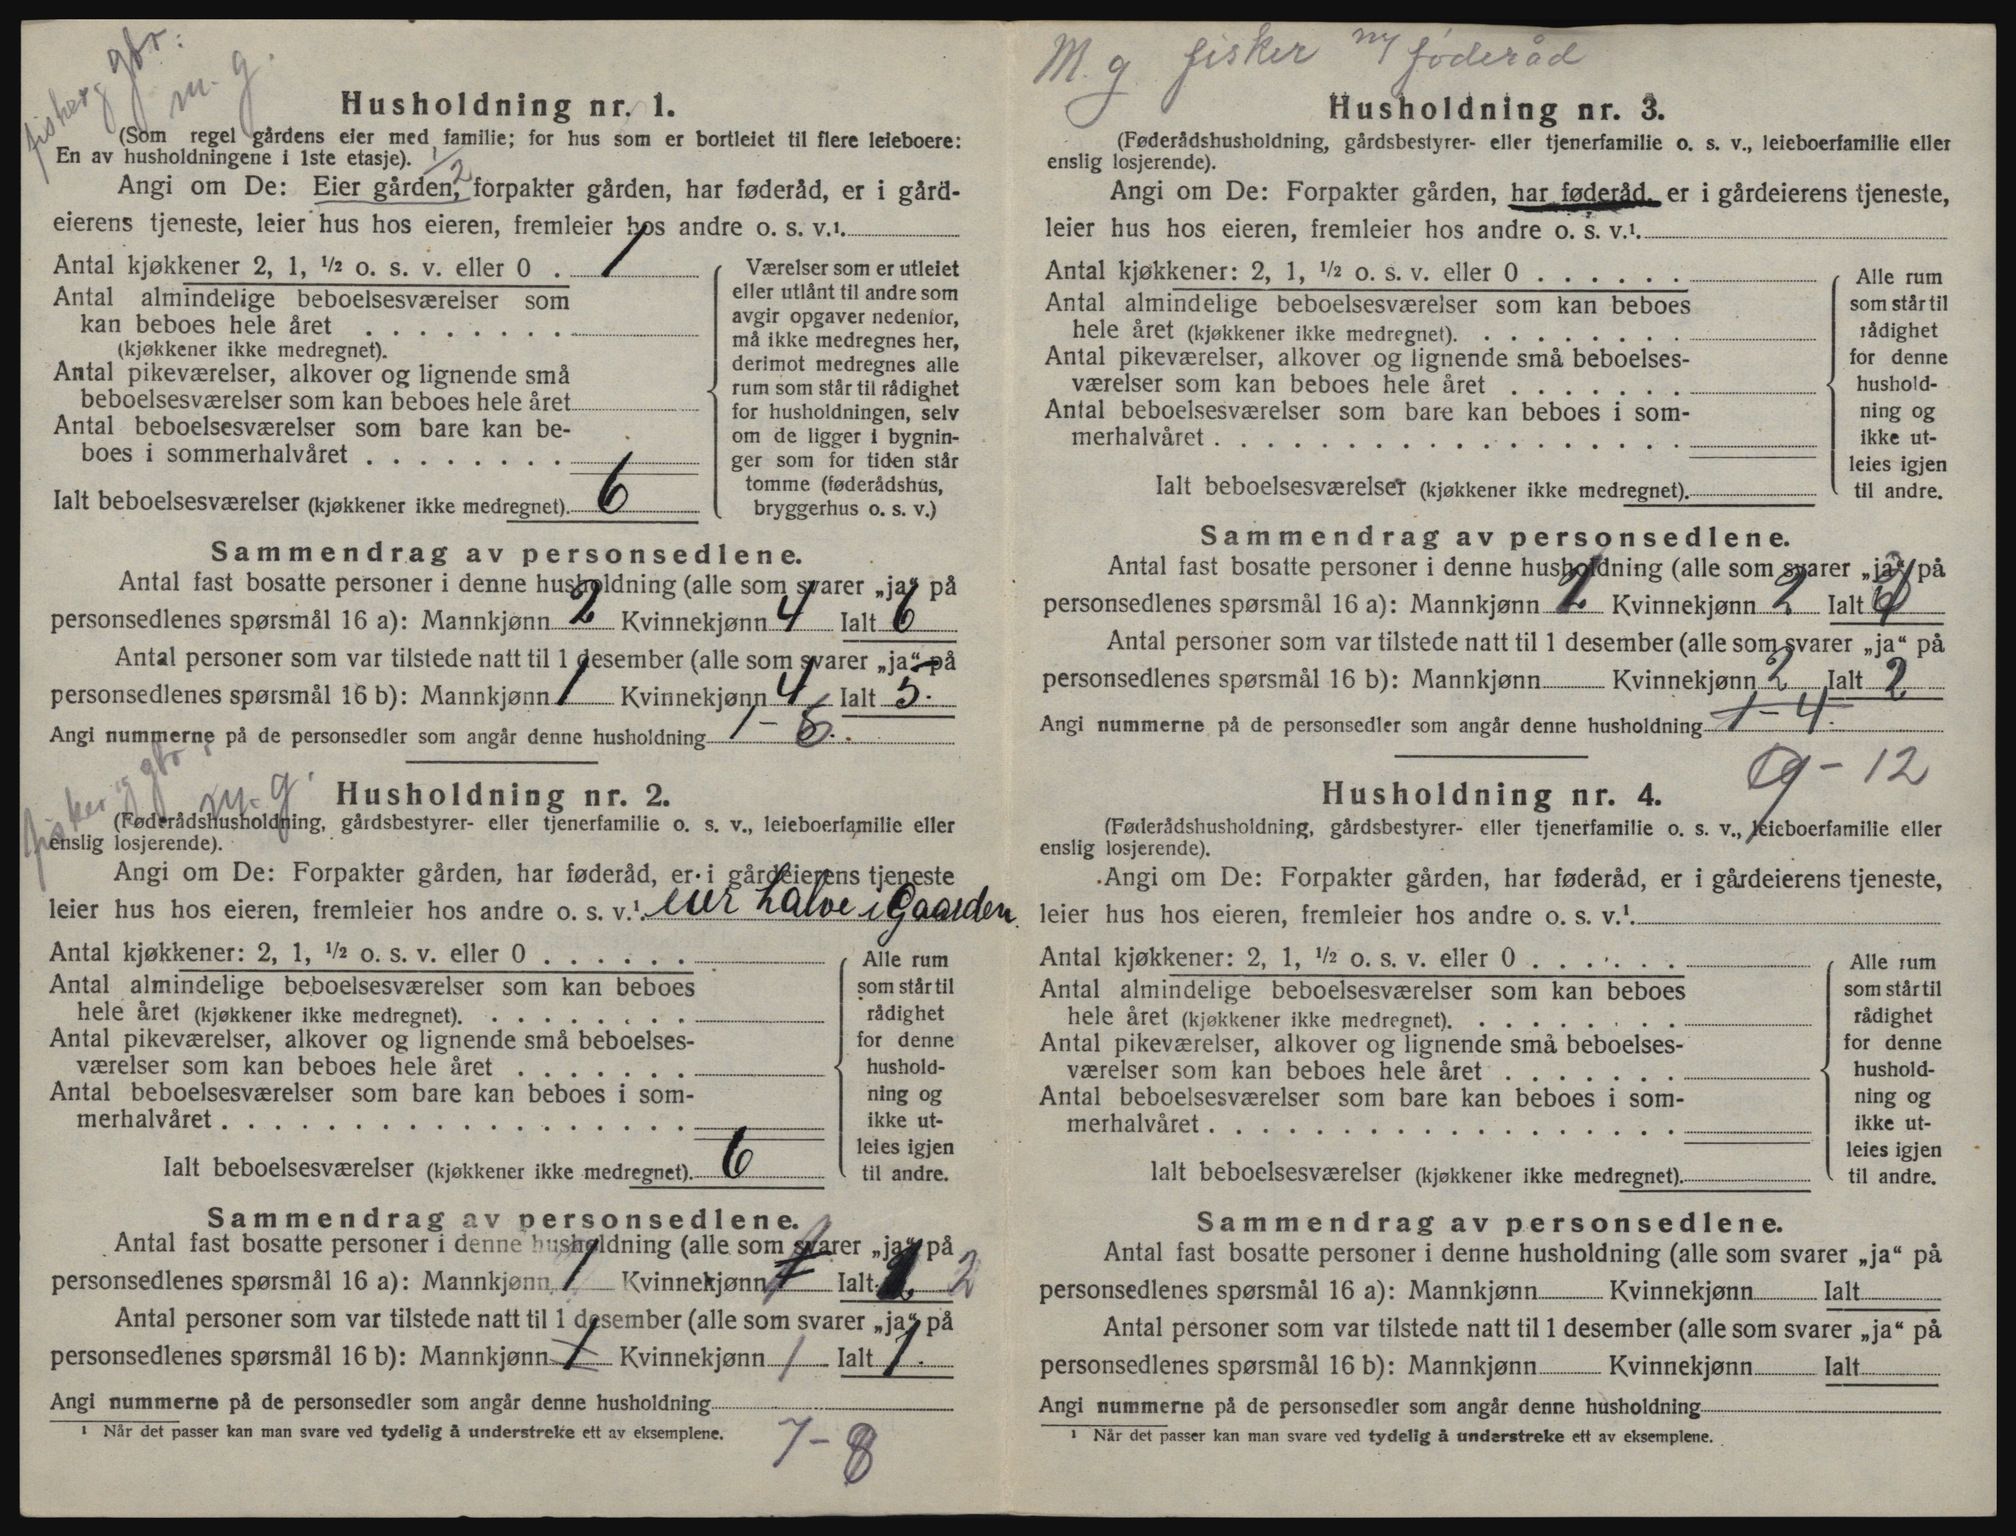 fisker og gbr.
m. g.
Husholdning nr. 1.
(Som regel gårdens eier med familie; for hus som er bortleiet til flere leieboere:
En av husholdningene i 1ste etasje). 1/2
Angi om De: Eier gården, forpakter gården, har føderåd, er i gård-
eierens tjeneste, leier hus hos eieren, fremleier hos andre o. s. v.¹.
Antal kjøkkener 2, 1, ½ o. s. v. eller 0 . 1
Antal almindelige beboelsesværelser som
kan beboes hele året . . . . . . . .
(kjøkkener ikke medregnet).
Antal pikeværelser, alkover og lignende små
beboelsesværelser som kan beboes hele året
Antal beboelsesværelser som bare kan be-
boes i sommerhalvåret . . . . . . . .
Ialt beboelsesværelser (kjøkkener ikke medregnet). 6
Værelser som er utleiet
eller utlånt til andre som
avgir opgaver nedenfor,
må ikke medregnes her,
derimot medregnes alle
rum som står til rådighet
for husholdningen, selv
om de ligger i bygnin-
ger som for tiden står
tomme (føderådshus,
bryggerhus o. s. v.)
Sammendrag av personsedlene.
Antal fast bosatte personer i denne husholdning (alle som svarer „ja“ på
personsedlenes spørsmål 16 a): Mannkjønn 2 Kvinnekjønn 4 Ialt 6
Antal personer som var tilstede natt til 1 desember (alle som svarer „ja“ på
personsedlenes spørsmål 16 b): Mannkjønn 1 Kvinnekjønn 4 Ialt 5.
Angi nummerne på de personsedler som angår denne husholdning 1 - 6.
fisker og gbr.
m. g.
Husholdning nr. 2.
(Føderådshusholdning, gårdsbestyrer- eller tjenerfamilie o. s. v., leieboerfamilie eller
enslig losjerende).
Angi om De: Forpakter gården, har føderåd, er i gårdeierens tjeneste
leier hus hos eieren, fremleier hos andre o. s. v.¹. eier halve i Gaarden.
Antal kjøkkener: 2, 1, ½ o. s. v. eller 0 . . . . . .
Antal almindelige beboelsesværelser som kan beboes
hele året (kjøkkener ikke medregnet). . . . . . . . .
Antal pikeværelser, alkover og lignende små beboelses-
værelser som kan beboes hele året . . . . . . .
Antal beboelsesværelser som bare kan beboes i som-
merhalvåret . . . . . . . . . . . . . . . . . .
Ialt beboelsesværelser (kjøkkener ikke medregnet). 6
Alle rum
som står til
rådighet
for denne
hushold-
ning og
ikke ut-
leies igjen
til andre.
Sammendrag av personsedlene.
Antal fast bosatte personer i denne husholdning (alle som svarer „ja“ på
personsedlenes spørsmål 16 a): Mannkjønn 1 Kvinnekjønn 1 Ialt 2 2
Antal personer som var tilstede natt til 1 desember (alle som svarer „ja“ på
personsedlenes spørsmål 16 b): Mannkjønn 1 Kvinnekjønn 1 Ialt 1.
Angi nummerne på de personsedler som angår denne husholdning
¹ Når det passer kan man svare ved tydelig å understreke ett av eksemplene.
7 - 8
M. g fisker m/ føderåd
Husholdning nr. 3.
(Føderådshusholdning, gårdsbestyrer- eller tjenerfamilie o. s. v., leieboerfamilie eller
enslig losjerende).
Angi om De: Forpakter gården, har føderåd, er i gårdeierens tjeneste,
leier hus hos eieren, fremleier hos andre o. s. v.¹.
Antal kjøkkener: 2, 1, ½ o. s. v. eller 0 . . . . . .
Antal almindelige beboelsesværelser som kan beboes
hele året (kjøkkener ikke medregnet). . . . . . . . .
Antal pikeværelser, alkover og lignende små beboelses-
værelser som kan beboes hele året . . . . . . .
Antal beboelsesværelser som bare kan beboes i som-
merhalvåret . . . . . . . . . . . . . . . . . .
Ialt beboelsesværelser (kjøkkener ikke medregnet).
Alle rum
som står til
rådighet
for denne
hushold-
ning og
ikke ut-
leies igjen
til andre.
Sammendrag av personsedlene.
Antal fast bosatte personer i denne husholdning (alle som svarer „ja“ på
personsedlenes spørsmål 16 a): Mannkjønn 2 Kvinnekjønn 2 Ialt
Antal personer som var tilstede natt til 1 desember (alle som svarer „ja“ på
personsedlenes spørsmål 16 b): Mannkjønn Kvinnekjønn 2 Ialt 2
Angi nummerne på de personsedler som angår denne husholdning 1 - 4.
9 - 12
Husholdning nr. 4.
(Føderådshusholdning, gårdsbestyrer- eller tjenerfamilie o. s. v., leieboerfamilie eller
enslig losjerende).
Angi om De: Forpakter gården, har føderåd, er i gårdeierens tjeneste,
leier hus hos eieren, fremleier hos andre o. s. v.¹.
Antal kjøkkener: 2, 1, ½ o. s. v. eller 0 . . . . . .
Antal almindelige beboelsesværelser som kan beboes
hele året (kjøkkener ikke medregnet). . . . . . . . .
Antal pikeværelser, alkover og lignende små beboelses-
værelser som kan beboes hele året . . . . . . .
Antal beboelsesværelser som bare kan beboes i som-
merhalvåret . . . . . . . . . . . . . . . . . .
Ialt beboelsesværelser (kjøkkener ikke medregnet).
Alle rum
som står til
rådighet
for denne
hushold-
ning og
ikke ut-
leies igjen
til andre.
Sammendrag av personsedlene.
Antal fast bosatte personer i denne husholdning (alle som svarer „ja“ på
personsedlenes spørsmål 16 a): Mannkjønn Kvinnekjønn Ialt
Antal personer som var tilstede natt til 1 desember (alle som svarer „ja“ på
personsedlenes spørsmål 16 b): Mannkjønn Kvinnekjønn Ialt
Angi nummerne på de personsedler som angår denne husholdning
¹ Når det passer kan man svare ved tydelig å understreke ett av eksemplene.